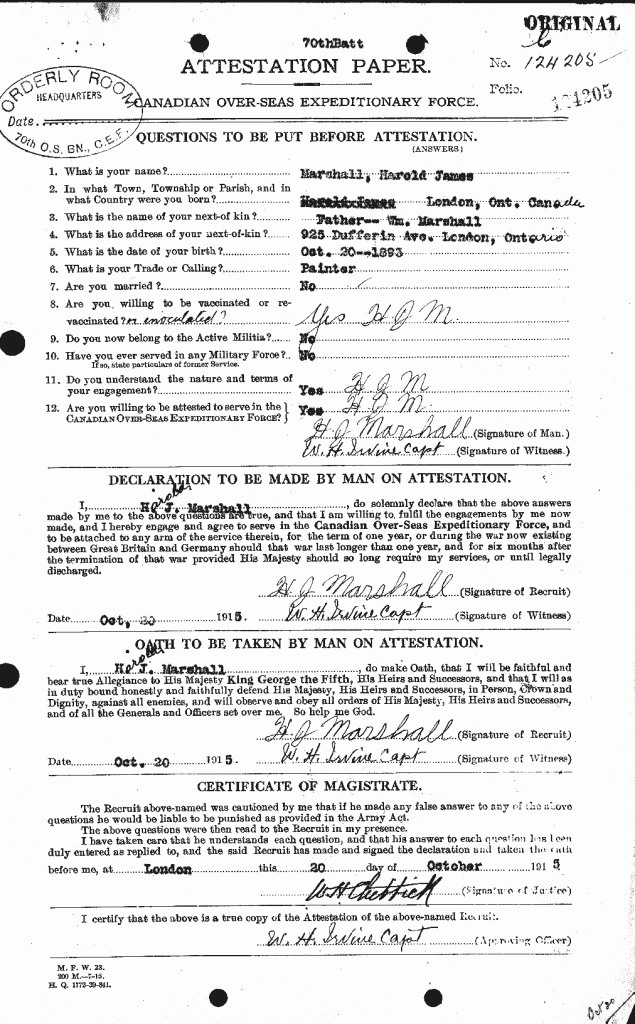 ORIGINAL
70thBatt
ATTESTATION PAPER.
No. 124205
Folio.
124205
ORDERLY ROOM
HEADQUARTERS
Date
70th O.S. BN., C.E.F.
CANADIAN OVER-SEAS EXPEDITIONARY FORCE.
QUESTIONS TO BE PUT BEFORE ATTESTATION.
(ANSWERS)
1. What is your name? Marshall, Harold James
2. In what Town, Township or Parish, and in
what Country were you born? London, Ont. Canada
3. What is the name of your next-of kin? Father-- Wm. Marshall
4. What is the address of your next-of-kin? 925 Dufferin Ave. London, Ontario
5. What is the date of your birth? Oct. 20--1893
6. What is your Trade or Calling? Painter
7. Are you married? No
8. Are you willing to be vaccinated or re-
vaccinated? or inoculated? Yes H J M.
9. Do you now belong to the Active Militia? No
10. Have you ever served in any Military Force? No
If so, state particulars of former Service.
11. Do you understand the nature and terms of
your engagement? Yes H J M
12. Are you willing to be attested to serve in the
CANADIAN OVER-SEAS EXPEDITIONARY FORCE? Yes H J M
H J Marshall (Signature of Man.)
W. H. Irvine Capt (Signature of Witness.)
DECLARATION TO BE MADE BY MAN ON ATTESTATION.
Harold
I, H. J. Marshall, do solemnly declare that the above answers
made by me to the above questions are true, and that I am willing to fulfil the engagements by me now
made, and I hereby engage and agree to serve in the Canadian Over-Seas Expeditionary Force, and
to be attached to any arm of the service therein, for the term of one year, or during the war now existing
between Great Britain and Germany should that war last longer than one year, and for six months after
the termination of that war provided His Majesty should so long require my services, or until legally
discharged.
H J Marshall (Signature of Recruit)
Date Oct, 20 1915. W. H. Irvine Capt (Signature of Witness)
OATH TO BE TAKEN BY MAN ON ATTESTATION.
Harold
I, H. J. Marshall, do make Oath, that I will be faithful and
bear true Allegiance to His Majesty King George the Fifth, His Heirs and Successors, and that I will as
in duty bound honestly and faithfully defend His Majesty, His Heirs and Successors, in Person, Crown and
Dignity, against all enemies, and will observe and obey all orders of His Majesty, His Heirs and Successors,
and of all the Generals and Officers set over me. So help me God.
H J Marshall (Signature of Recruit)
Date Oct. 20 1915. W. H. Irvine Capt (Signature of Witness)
CERTIFICATE OF MAGISTRATE.
The Recruit above-named was cautioned by me that if he made any false answer to any of the above
questions he would be liable to be punished as provided in the Army Act.
The above questions were then read to the Recruit in my presence.
I have taken care that he understands each question, and that his answer to each question has been
duly entered as replied to, and the said Recruit has made and signed the declaration and taken the oath
before me, at London this 20 day of October 1915
(Signature of Justice)
I certify that the above is a true copy of the Attestation of the above-named Recruit.
W. H. Irvine Capt (Approving Officer)
M. F. W. 23.
200 M.—7-15.
H. Q. 1772-39-841.
Oct 20